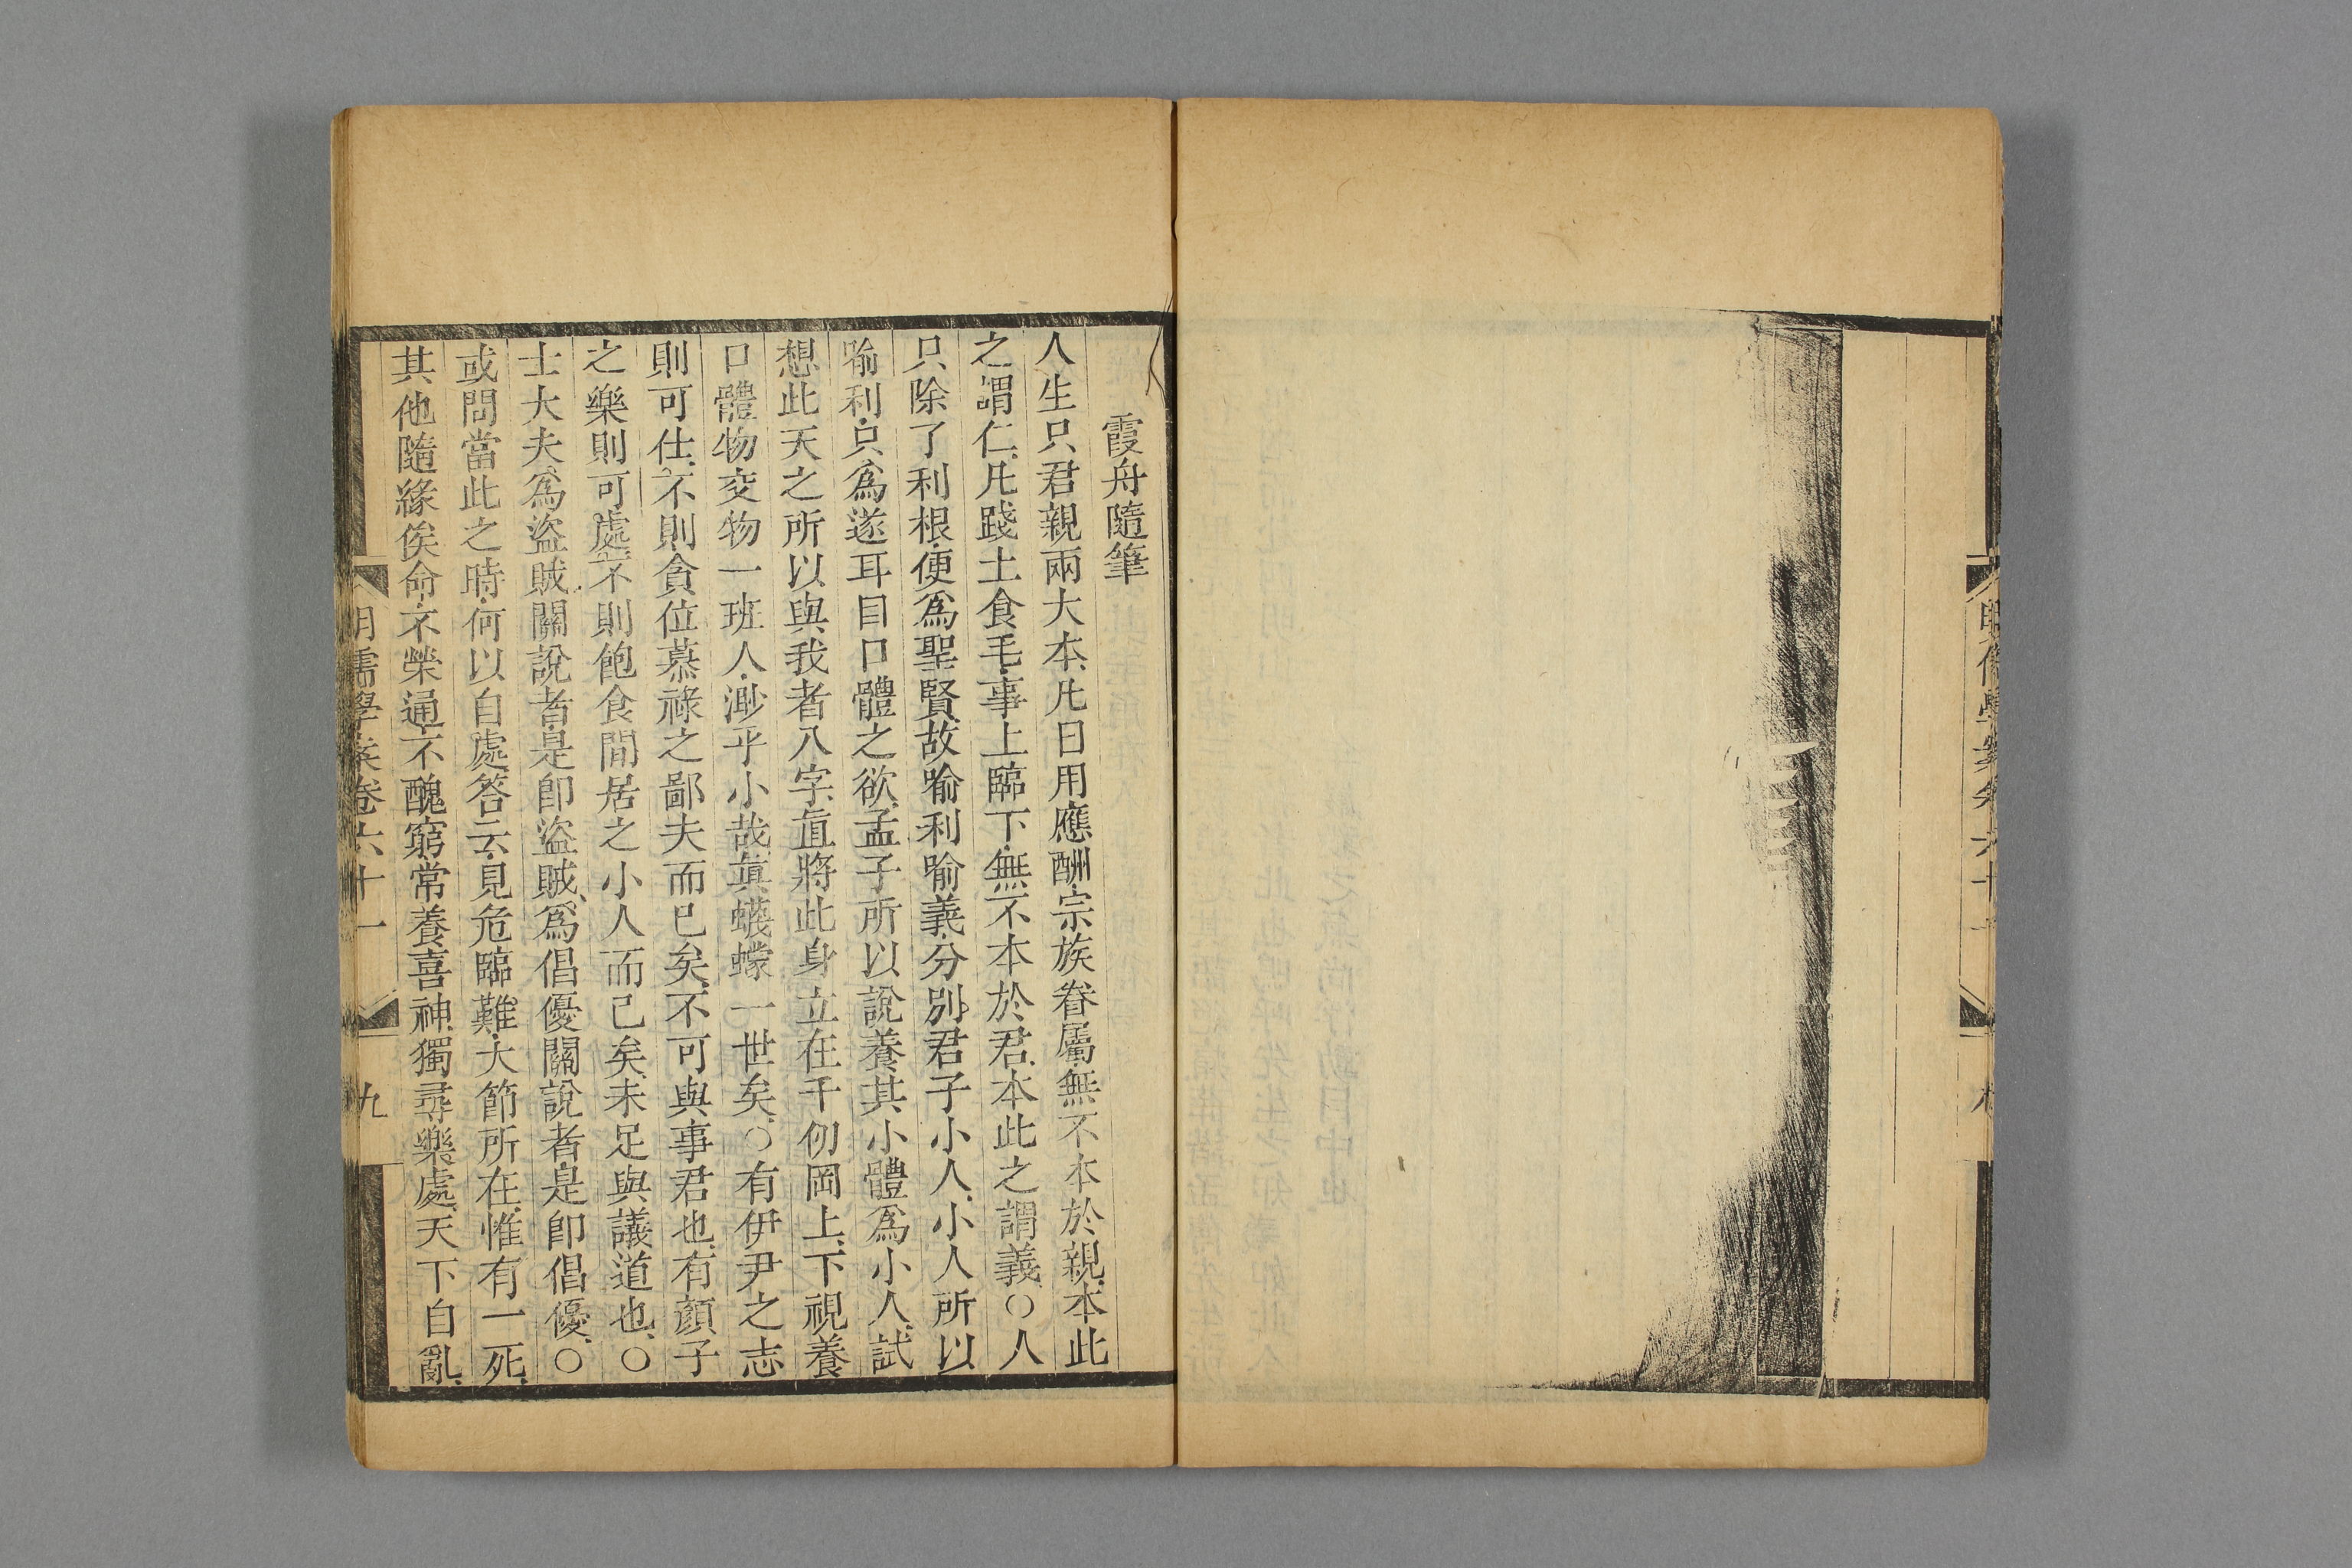 霞舟隨筆
人生只君親兩大本、凡日用應酬、宗族眷屬、無不本於親、本此
之謂仁、凡踐土食毛、事上臨下、無不本於君、本此之謂義、○人
只除了利根、便爲聖賢、故喻利喻義、分別君子小人、小人所以
喻利、只爲遂耳目口體之欲、孟子所以說養其小體爲小人、試
想此天之所以與我者八字、直將此身立在千仞岡上、下視養
口體物交物一班人、渺乎小哉、眞蠛蠓一世矣、○有伊尹之志
則可仕、不則貪位慕祿之鄙夫而已矣、不可與事君也、有顏子
之樂則可處、不則飽食閒居之小人而已矣、未足與議道也、○
士大夫爲盜賊關說者、是卽盜賊、爲倡優關說者、是卽倡優、○
或問當此之時、何以自處、答云、見危臨難、大節所在、惟有一死、
其他隨緣俟命、不榮通、不醜窮、常養喜神、獨尋樂處、天下自亂、
明儒學案卷六十一
九